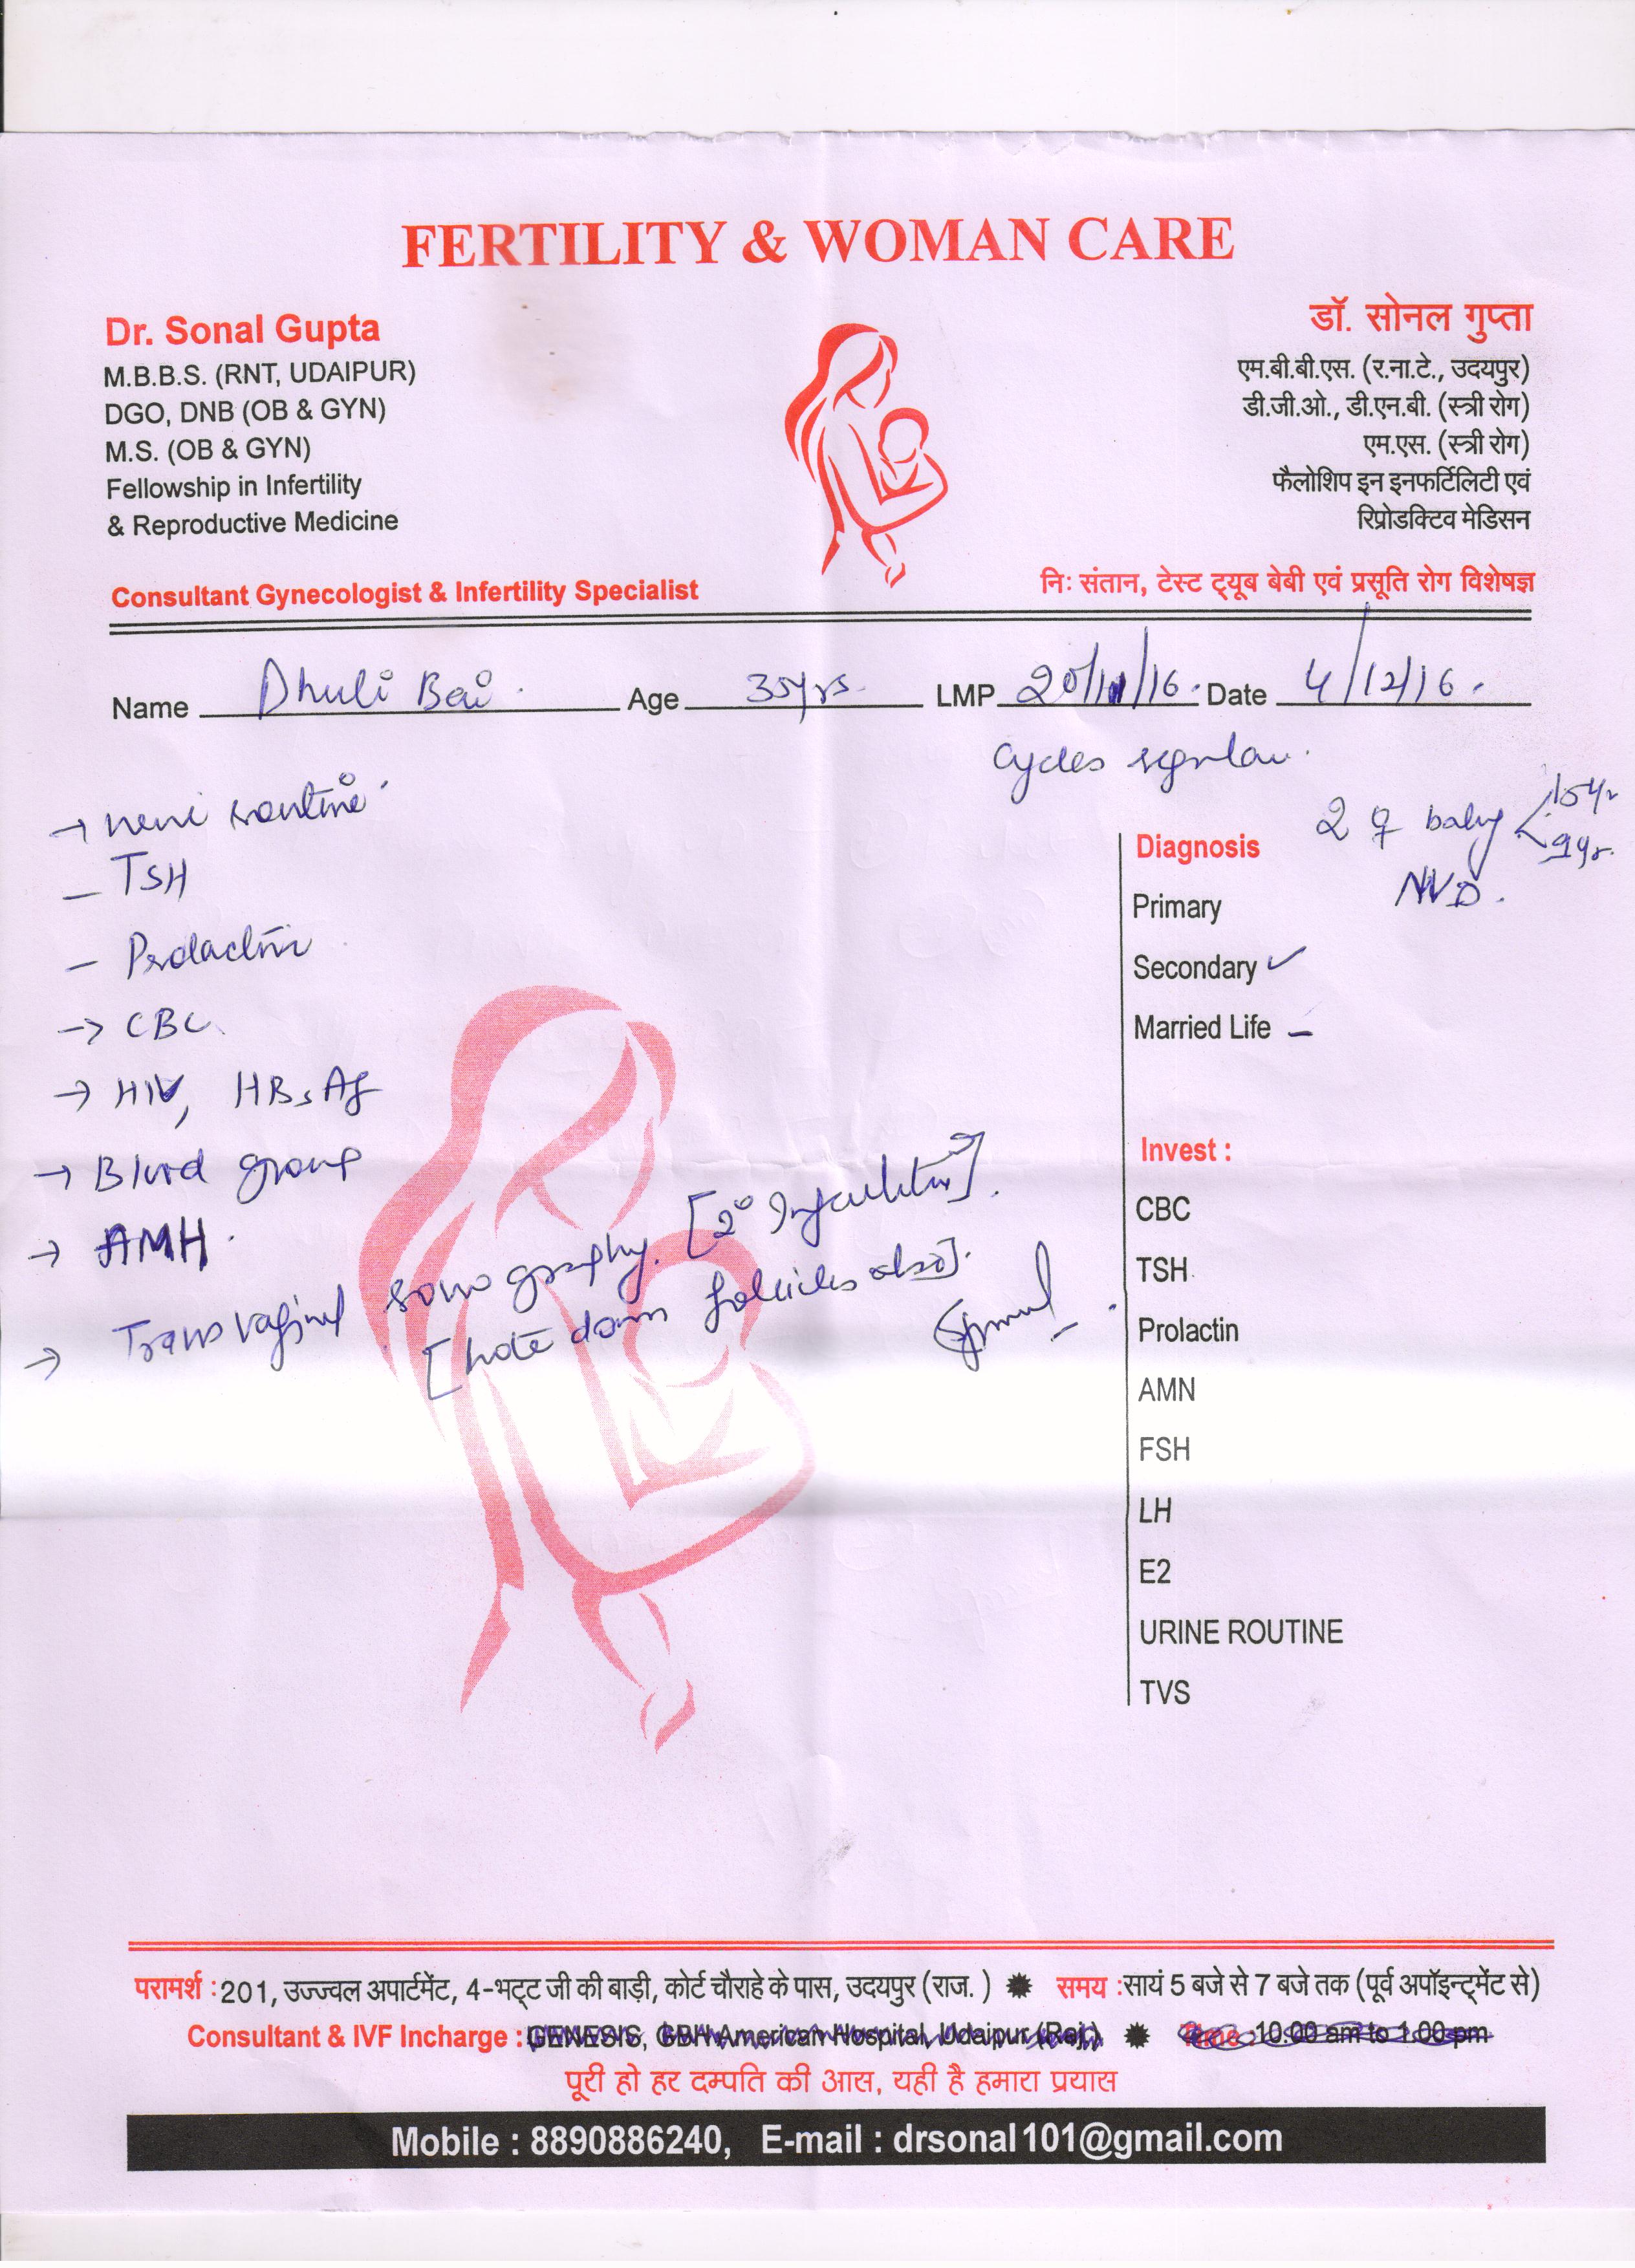 FERTILITY & WOMAN CARE
Dr. Sonal Gupta
M.B.B.S. (RNT, UDAIPUR)
DGO, DNB (OB & GYN)
M.S. (OB & GYN)
Fellowship in Infertility
& Reproductive Medicine
Consultant Gynecologist & Infertility Specialist
डॉ. सोनल गुप्ता
एम.बी.बी.एस. (र.ना.टे., उदयपुर)
डी.जी.ओ., डी.एन.बी. (स्त्री रोग)
एम.एस. (स्त्री रोग)
फैलोशिप इन इनफर्टिलिटी एवं
रिप्रोडक्टिव मेडिसन
निः संतान, टेस्ट ट्यूब बेबी एवं प्रसूति रोग विशेषज्ञ
Name Dhuli Bai Age 35yrs. LMP 20/11/16. Date 4/12/16.
Cycles regular.
→ urine routine
- TSH
- Prolactin
→ CBC
→ HIV, HBsAg
→ Blood group
→ AMH.
→ Transvaginal sonography. [2° Infertility].
[note down follicles also].
2 ♀ baby < 15yr
9yr.
NVD.
Diagnosis
Primary
Secondary ✓
Married Life –
Invest :
CBC
TSH
Prolactin
AMN
FSH
LH
E2
URINE ROUTINE
TVS
परामर्श : 201, उज्ज्वल अपार्टमेंट, 4-भट्ट जी की बाड़ी, कोर्ट चौराहे के पास, उदयपुर (राज. ) ✹ समय :सायं 5 बजे से 7 बजे तक (पूर्व अपॉइन्ट्मेंट से)
Consultant & IVF Incharge : GENESIS, GBH American Hospital, Udaipur (Raj.) ✹ Time : 10.00 am to 1.00 pm
पूरी हो हर दम्पति की आस, यही है हमारा प्रयास
Mobile : 8890886240, E-mail : drsonal101@gmail.com